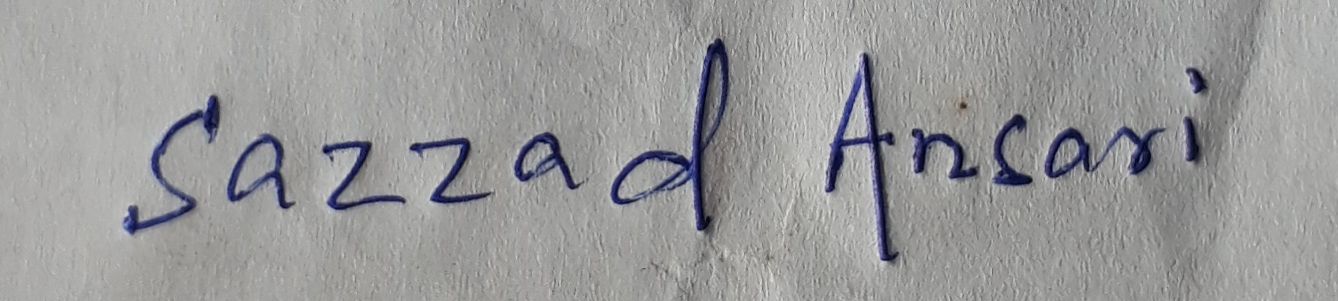 Sazzad Ansari